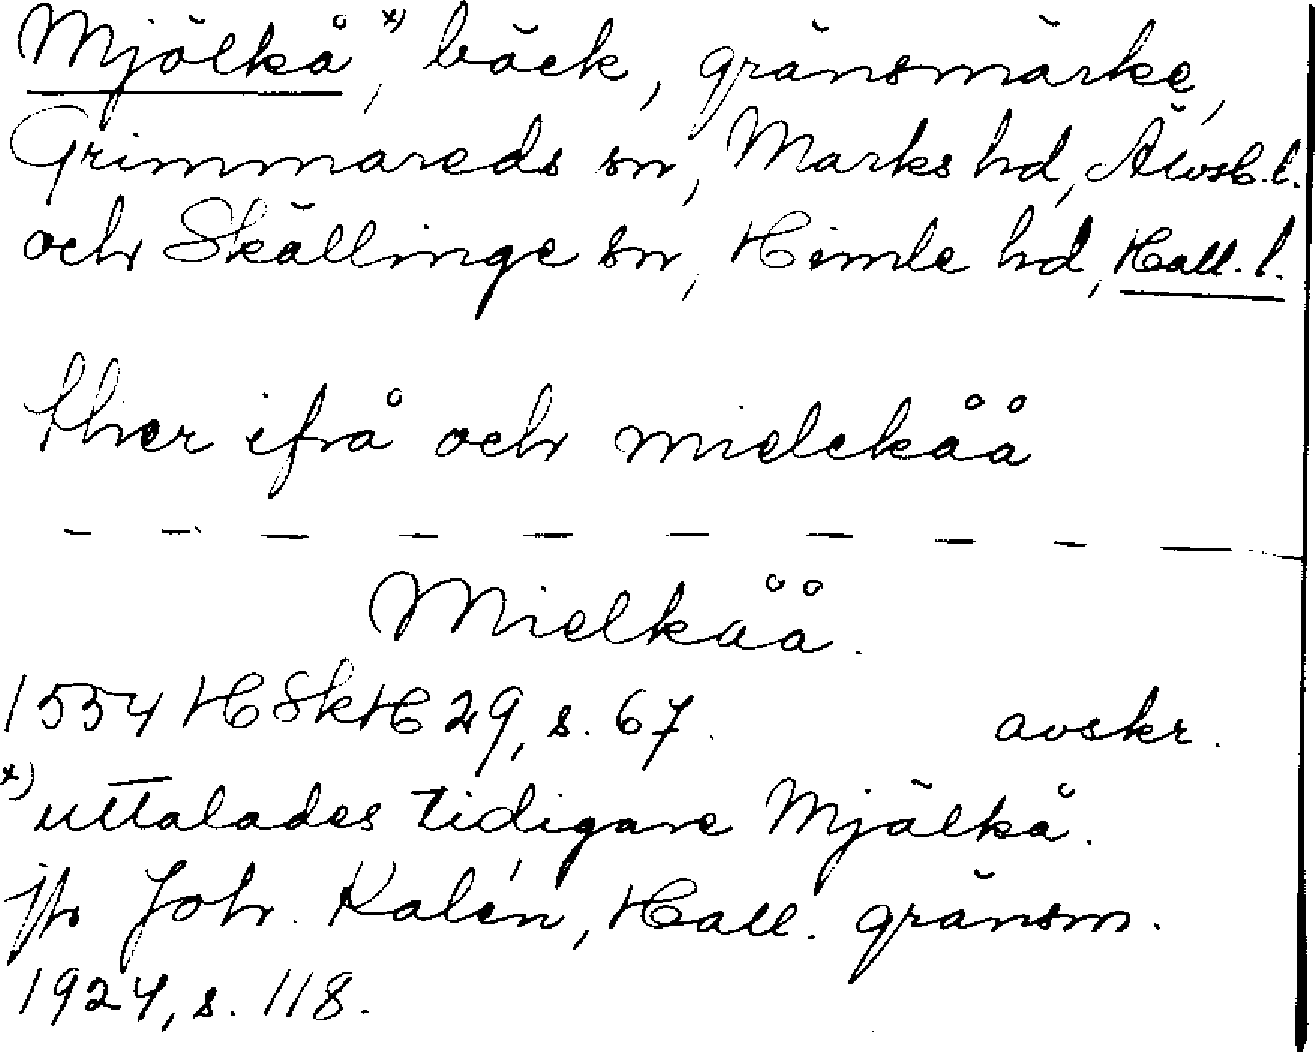 Mjölkå x), bäck, gränsmärke,
Grimmareds sn, Marks hd, Älvsb. l.
och Skällinge sn, Himle hd, Hall. l.
ther ifrå och mielckåå
— — — — — — — — — —
Mielkåå.
1554 HSkH 29, s. 67. avskr.
x) uttalades tidigare Mjälkå.
jfr Joh. Kalén, Hall. gränsm.
1924, s. 118.